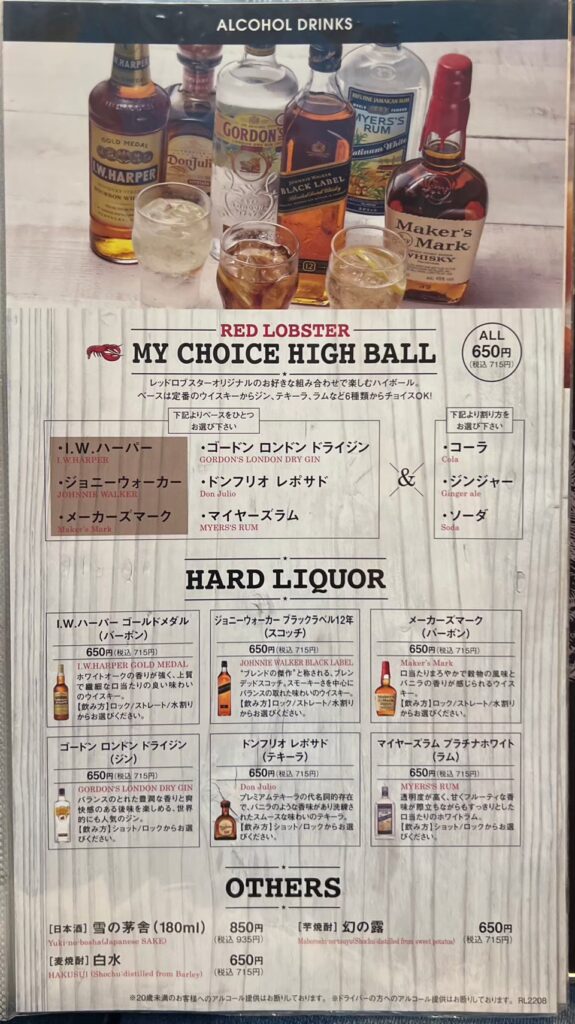 ALCOHOL DRINKS
I.W.HARPER
GOLD MEDAL
I.W. HARPER
Don Julio
GORDON'S
JOHNNIE WALKER
BLACK LABEL
Blended Scotch Whisky
12
100% FINE JAMAICAN RUM
MYERS'S
RUM
Platinum White
Maker's
Mark
WHISKY
RED LOBSTER
MY CHOICE HIGH BALL
ALL
650円
(税込 715円)
レッドロブスターオリジナルのお好きな組み合わせで楽しむハイボール。
ベースは定番のウイスキーからジン、テキーラ、ラムなど6種類からチョイスOK!
下記よりベースをひとつ
お選び下さい
下記より割り方を
お選び下さい
・I.W.ハーパー
I.W.HARPER
・ジョニーウォーカー
JOHNNIE WALKER
・メーカーズマーク
Maker's Mark
・ゴードン ロンドン ドライジン
GORDON'S LONDON DRY GIN
・ドンフリオ レポサド
Don Julio
・マイヤーズラム
MYERS'S RUM
&
・コーラ
Cola
・ジンジャー
Ginger ale
・ソーダ
Soda
HARD LIQUOR
I.W.ハーパー ゴールドメダル
(バーボン)
650円(税込 715円)
I.W.HARPER GOLD MEDAL
ホワイトオークの香りが強く、上質
で繊細な口当たりの良い味わい
のウイスキー。
【飲み方】ロック/ストレート/水割り
からお選びください。
ジョニーウォーカー ブラックラベル12年
(スコッチ)
650円(税込 715円)
JOHNNIE WALKER BLACK LABEL
"ブレンドの傑作"と称される、ブレン
デッドスコッチ。スモーキーさを中心に
バランスの取れた味わいのウイスキー。
【飲み方】ロック/ストレート/水割り
からお選びください。
メーカーズマーク
(バーボン)
650円(税込 715円)
Maker's Mark
口当たりまろやかで穀物の風味と
バニラの香りが感じられるウイス
キー。
【飲み方】ロック/ストレート/水割り
からお選びください。
ゴードン ロンドン ドライジン
(ジン)
650円(税込 715円)
GORDON'S LONDON DRY GIN
バランスのとれた豊潤な香りと爽
快感のある後味を楽しめる、世界
的にも人気のジン。
【飲み方】ショット/ロックからお選
びください。
ドンフリオ レポサド
(テキーラ)
650円(税込 715円)
Don Julio
プレミアムテキーラの代名詞的存在
で、バニラのような香味があり洗練さ
れたスムースな味わいのテキーラ。
【飲み方】ショット/ロックからお選
びください。
マイヤーズラム プラチナホワイト
(ラム)
650円(税込 715円)
MYERS'S RUM
透明度が高く、甘くフルーティな香
味が際立ちながらもすっきりとした
口当たりのホワイトラム。
【飲み方】ショット/ロックからお選
びください。
OTHERS
[日本酒] 雪の茅舎(180ml) 850円
Yuki-no-bosha(Japanese SAKE) (税込 935円)
[芋焼酎] 幻の露 650円
Maboroshi-no-tsuyu(Shochu distilled from sweet potatos) (税込 715円)
[麦焼酎] 白水 650円
HAKUSUI (Shochu distilled from Barley) (税込 715円)
※20歳未満のお客様へのアルコール提供はお断りしております。 ※ドライバーの方へのアルコール提供はお断りしております。 RL2208